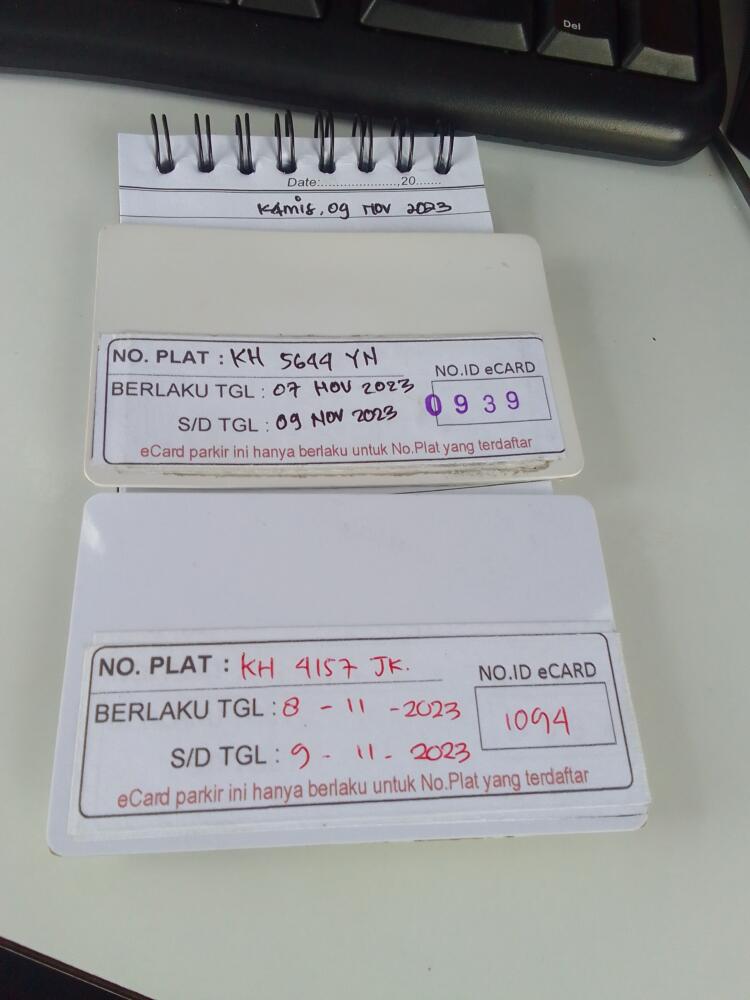 Del
Date:....................,20.......
Kamis, 09 NOV 2023
NO. PLAT : KH 5644 YN
BERLAKU TGL : 07 NOV 2023
NO.ID eCARD
0939
S/D TGL : 09 NOV 2023
eCard parkir ini hanya berlaku untuk No.Plat yang terdaftar
NO. PLAT : KH 4157 JK.
NO.ID eCARD
BERLAKU TGL : 8 - 11 - 2023
1094
S/D TGL : 9 - 11 - 2023
eCard parkir ini hanya berlaku untuk No.Plat yang terdaftar